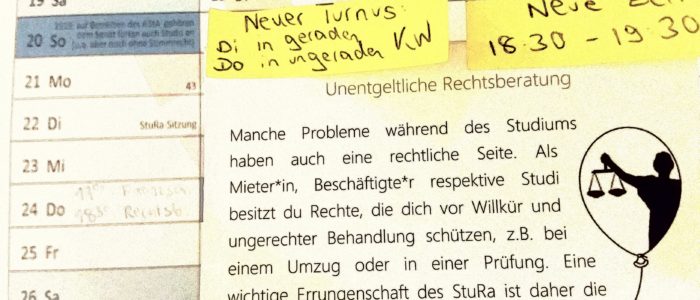 19 Sa
20 So
21 Mo
43
22 Di
StuRa-Sitzung
23 Mi
24 Do
25 Fr
26 Sa
Neuer Turnus:
Di in geraden
Do in ungeraden KW
Neue
18:30 - 19:30
Unentgeltliche Rechtsberatung
Manche Probleme während des Studiums
haben auch eine rechtliche Seite. Als
Mieter*in, Beschäftigte*r respektive Studi
besitzt du Rechte, die dich vor Willkür und
ungerechter Behandlung schützen, z.B. bei
einem Umzug oder in einer Prüfung. Eine
wichtige Errungenschaft des StuRa ist daher die